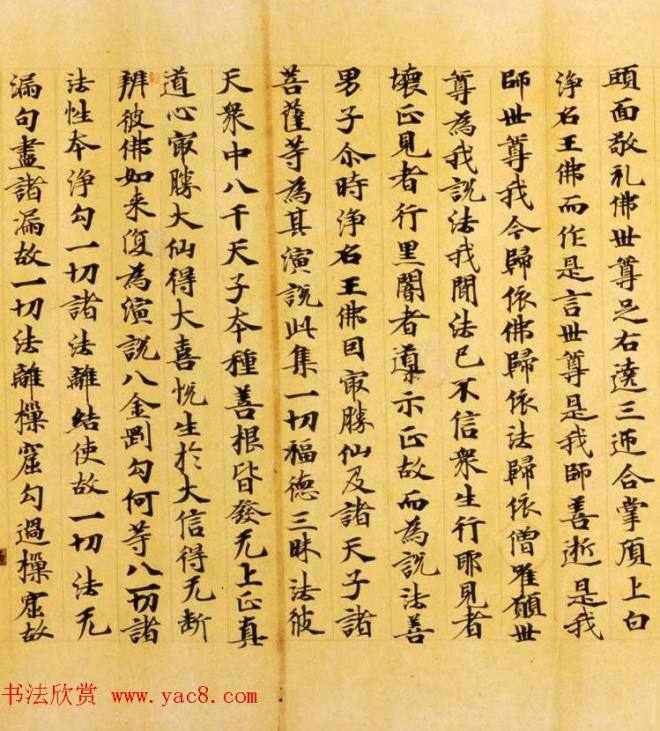 頭面敬礼佛世尊足右遶三迊合掌頂上白
淨名王佛而作是言世尊是我師善逝是我
師世尊我今歸依佛歸依法歸依僧唯願世
尊為我說法我聞法已不信衆生行耶見者
壞正見者行黑闇者導示正故而為說法善
男子尒時淨名王佛因㝡勝仙及諸天子諸
菩薩等為其演說此集一切福德三昧法彼
天衆中八千天子夲種善根皆發无上正真
道心㝡勝大仙得大喜悅生於大信得无斷
辨彼佛如来復為演說八金剛勾何等八一切諸
法性夲淨勾一切諸法離結使故一切法无
漏句盡諸漏故一切法離樔窟勾過樔窟故
书法欣赏 www.yac8.com